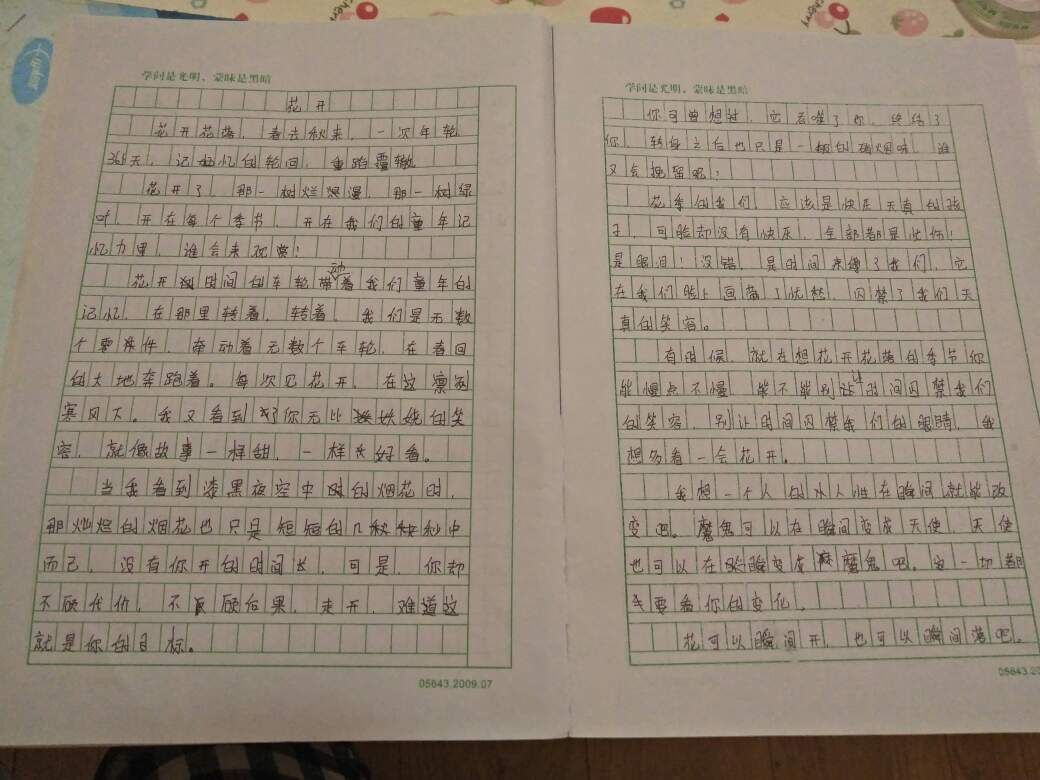 学问是光明，蒙昧是黑暗
花开
花开花落，春去秋来，一次年轮
365天，记忆的轮回，重蹈覆辙
花开了，那一树烂漫，那一树绿
叶，开在每个季节，开在我们的童年记
忆力里，谁会来观赏！
花开时间的车轮带动着我们童年的
记忆，在那里转着，转着，我们是无数
个零件，牵动着无数个车轮，在春回
的大地奔跑着。每次见花开，在这凛冽
寒风下。我又看到了你无比妖娆的笑
容，就像故事一样甜，一样好看。
当我看到漆黑夜空中的烟花时，
那灿烂的烟花也只是短短的几秒中
而已，没有你开的时间长，可是，你却
不顾代价，不顾后果，走开，难道这
就是你的目标。
05643.2009.07
学问是光明，蒙昧是黑暗
你可曾想过，它吞噬了你，终结了
你，转身之后也只是一树的硝烟味，谁
又会挽留呢！
花季的我们，应该是快乐天真的孩
子，可脸却没有快乐，全部都是忧伤！
是眼泪！没错，是时间束缚了我们，它
在我们脸上画落了忧愁，囚禁了我们天
真的笑容。
有时候，就在想花开花落的季节你
能慢点不慢，能不能别让时间囚禁我们
的笑容，别让时间囚禁我们的眼睛，我
想多看一会花开。
我想一个人的人性在瞬间就能改
变吧。魔鬼可以在瞬间变成天使，天使
也可以在瞬变成魔鬼吧。这一切都
要看你的变化。
花可以瞬间开，也可以瞬间落吧。